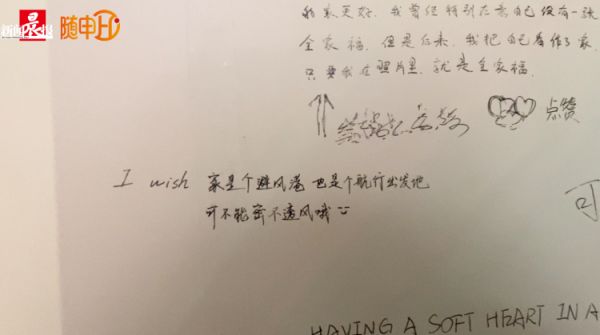 新闻晨报 随申Hi
和家更好.我曾经特别在意自己没有一张
全家福.但是后来.我把自己看作了家.
只要我在照片里.就是全家福.
点赞
I wish 家是个避风港 也是个航行出发地
可不能密不透风哦
可
HAVING A SOFT HEART IN A